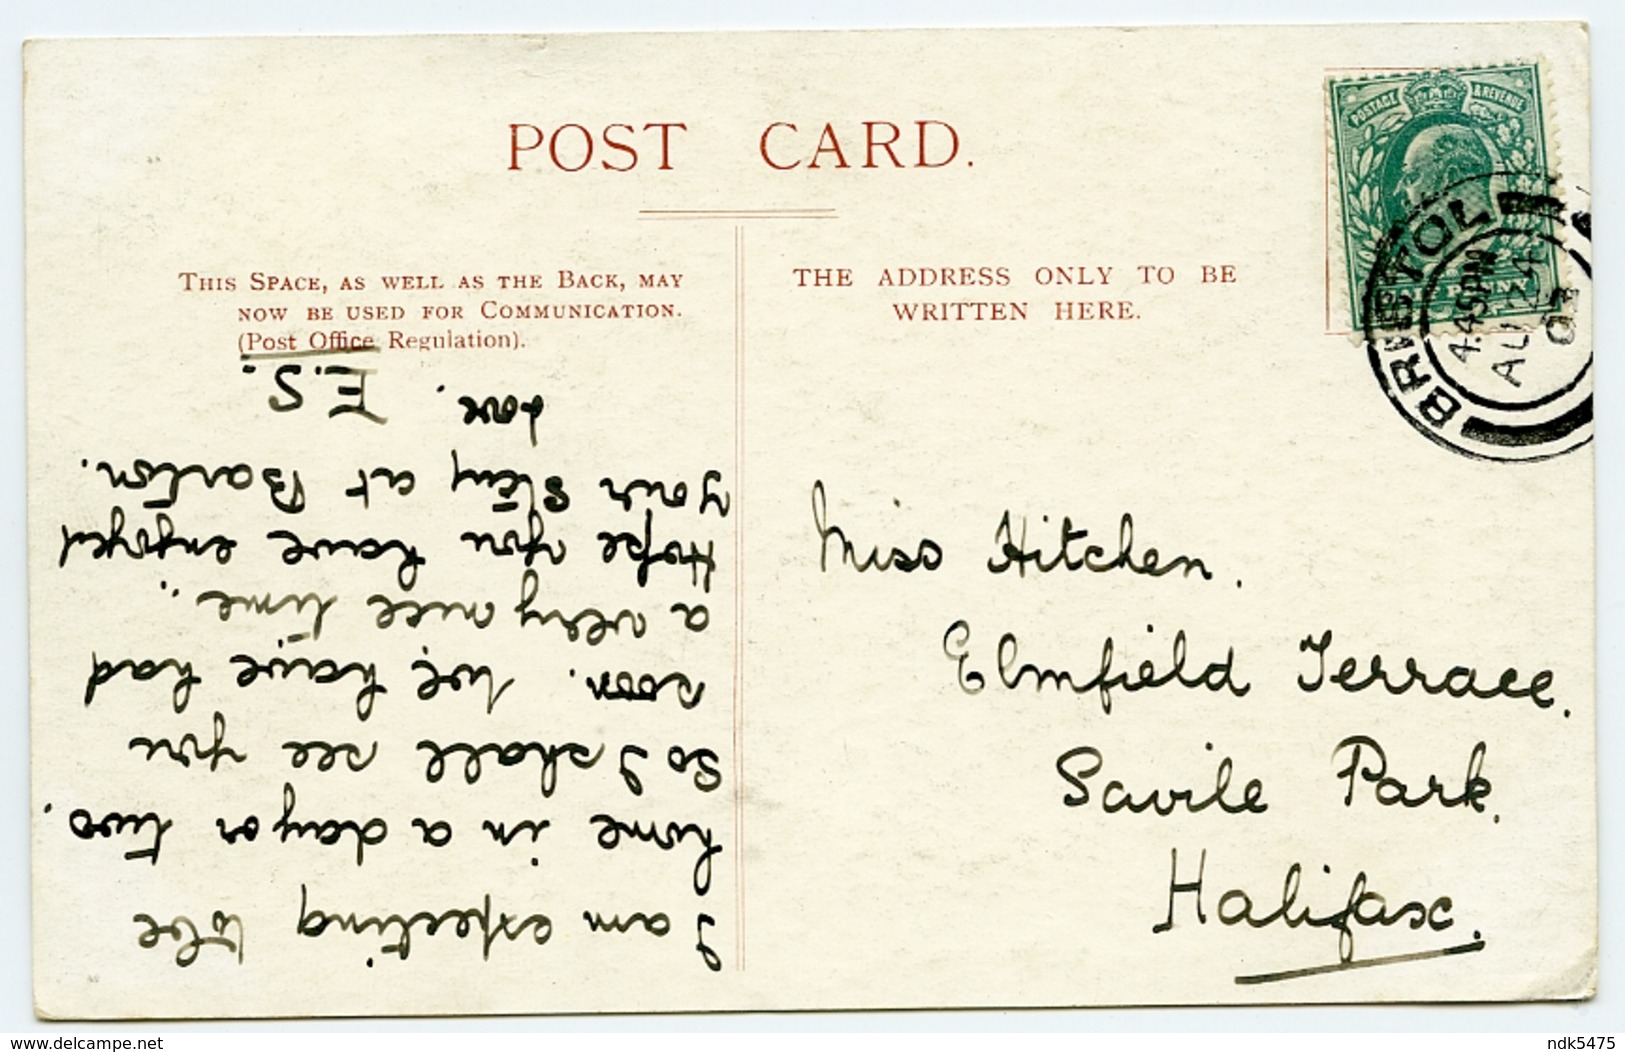 POST CARD.
THIS SPACE, AS WELL AS THE BACK, MAY
NOW BE USED FOR COMMUNICATION.
(Post Office Regulation).
THE ADDRESS ONLY TO BE
WRITTEN HERE.
POSTAGE & REVENUE
BRISTOL
4.45PM
AU 24
03
I am expecting to be
home in a day or two.
So I shall see you
soon. We have had
a very nice time..
Hope you have enjoyed
your stay at Barton.
Love.
E.S.
Miss Hitchen.
Elmfield Terrace.
Savile Park.
Halifax.
www.delcampe.net
ndk5475